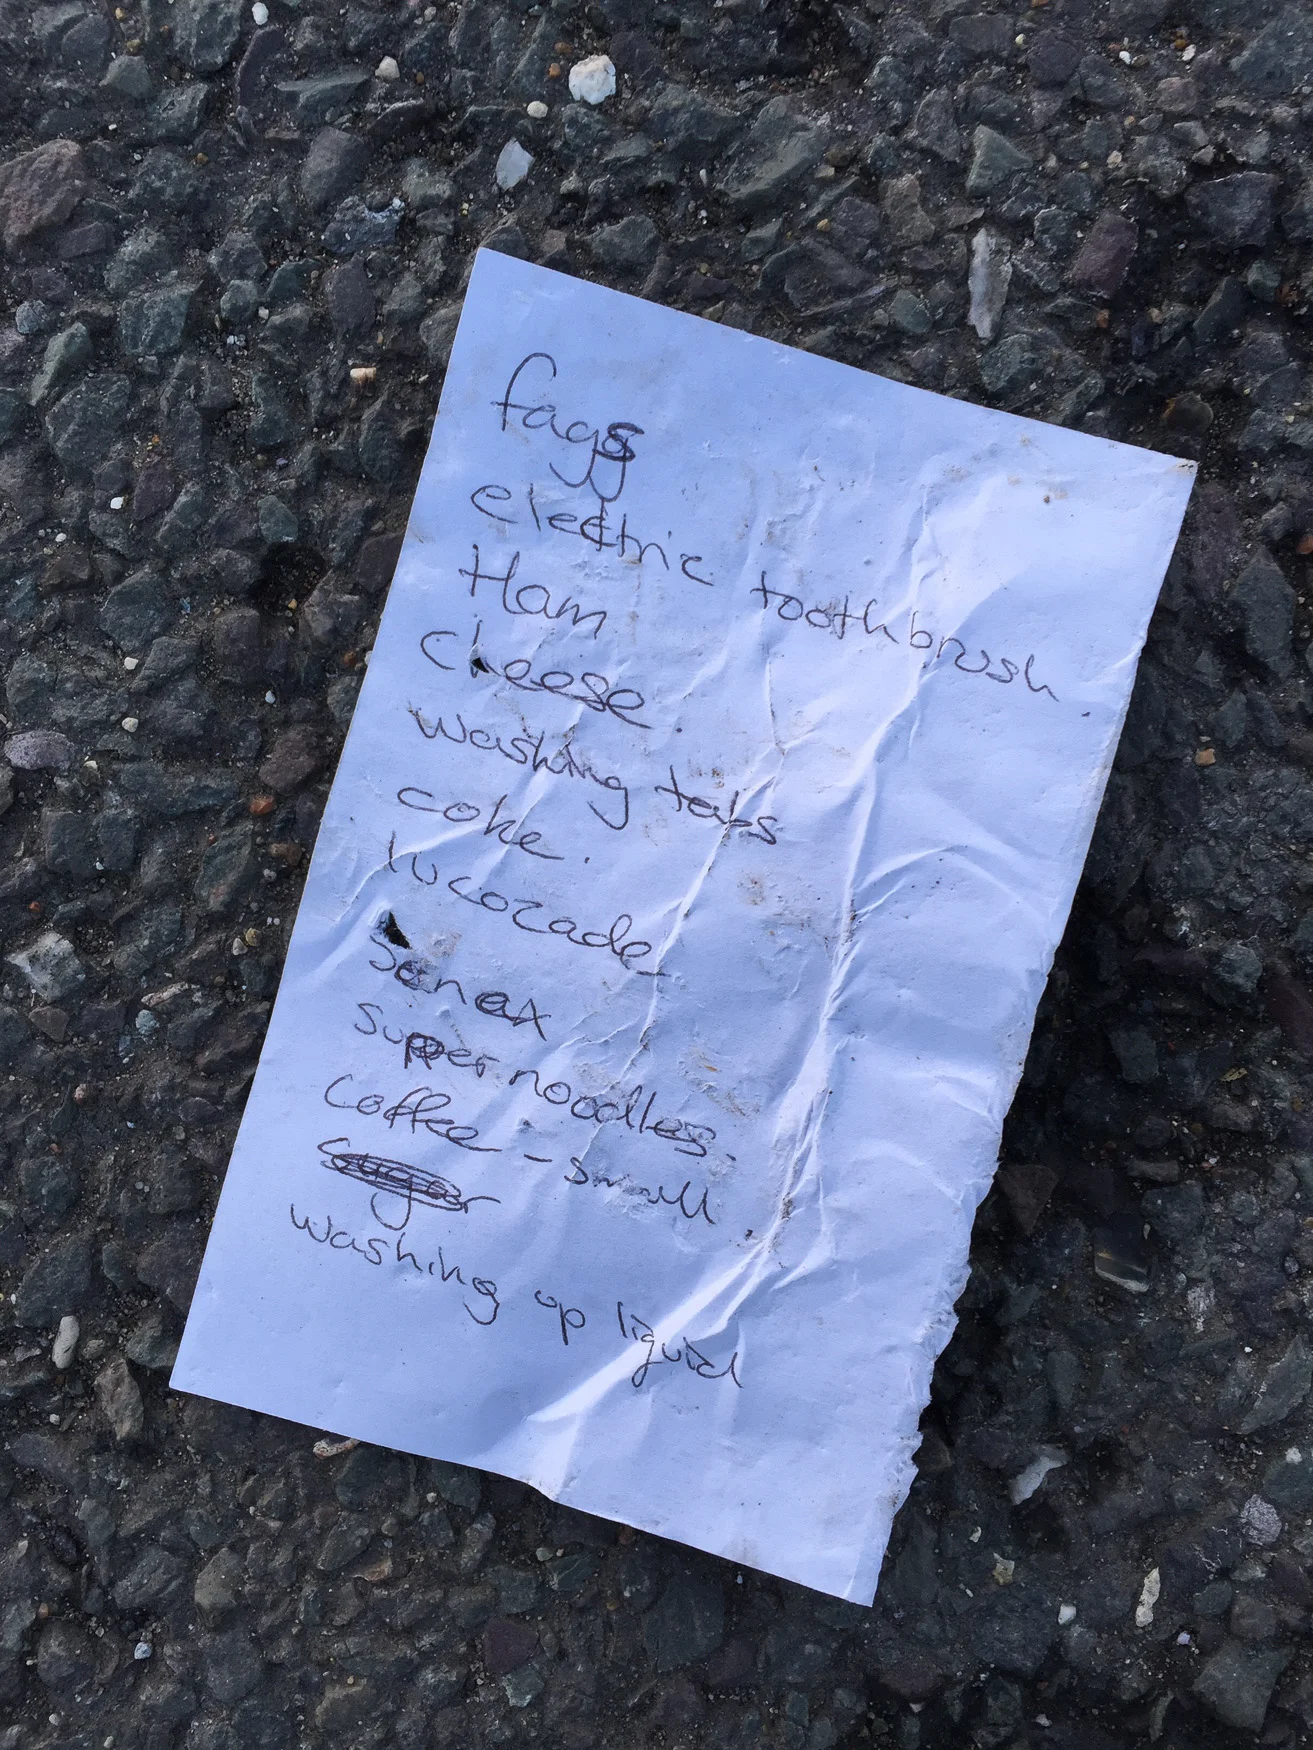 fags
electric toothbrush
Ham
cheese
washing tabs
coke.
lucozade
Sanex
super noodles.
Coffee - small
Sugar
washing up liquid